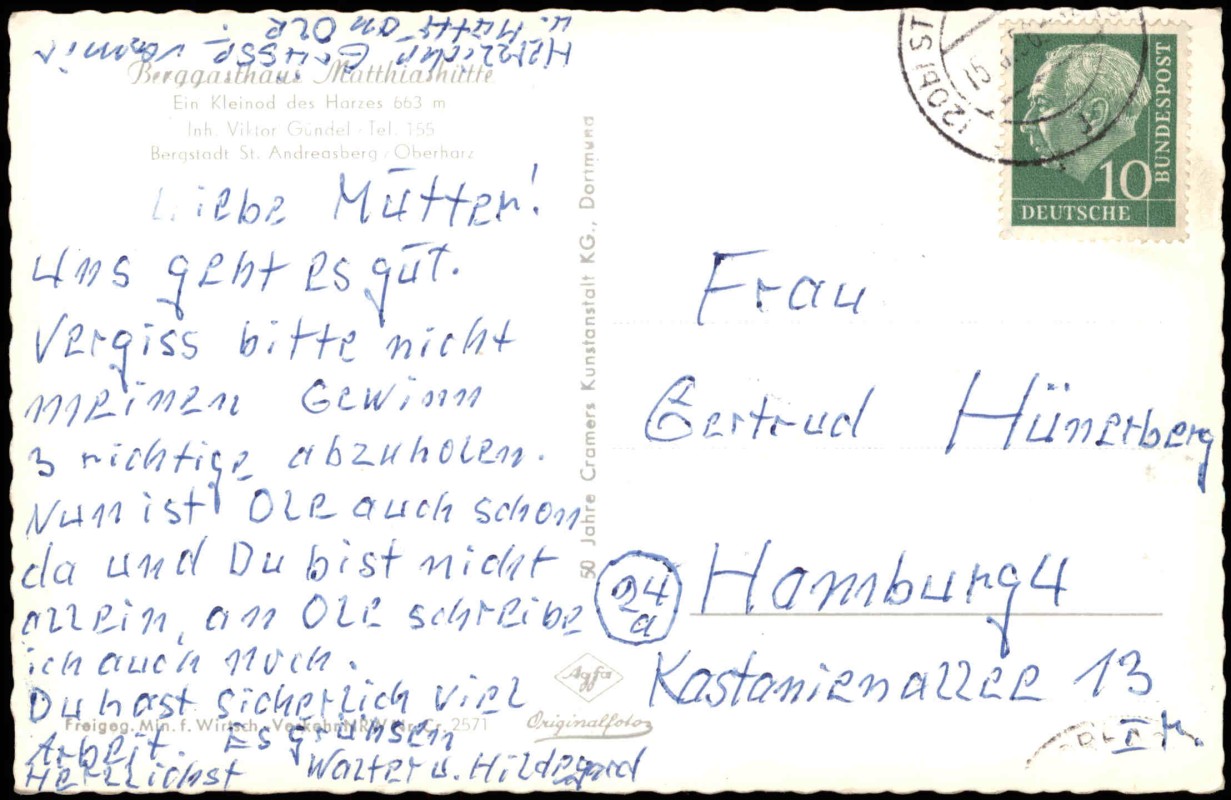 Herzliche Grüsse von mir
u. Mutter an OLE
Berggasthaus Matthiashütte
Ein Kleinod des Harzes 663 m
Inh. Viktor Gündel · Tel. 155
Bergstadt St. Andreasberg / Oberharz
Liebe Mutter!
Uns geht es gut.
Vergiss bitte nicht
meinen Gewinn
3 richtige abzuholen.
Nun ist OLE auch schon
da und Du bist nicht
allein, an OLE schreibe
ich auch noch.
Du hast sicherlich viel
Arbeit. Es grüssen
Herzlichst Walter u. Hildegard
Freigeg. Min. f. Wirtsch. Verkehr NRW Nr. Cr. 2571
50 Jahre Cramers Kunstanstalt KG., Dortmund
Agfa
Originalfoto
(20b) ST
15
10
DEUTSCHE
BUNDESPOST
Frau
Gertrud Hünerberg
24a
Hamburg 4
Kastanienallee 13
II r.